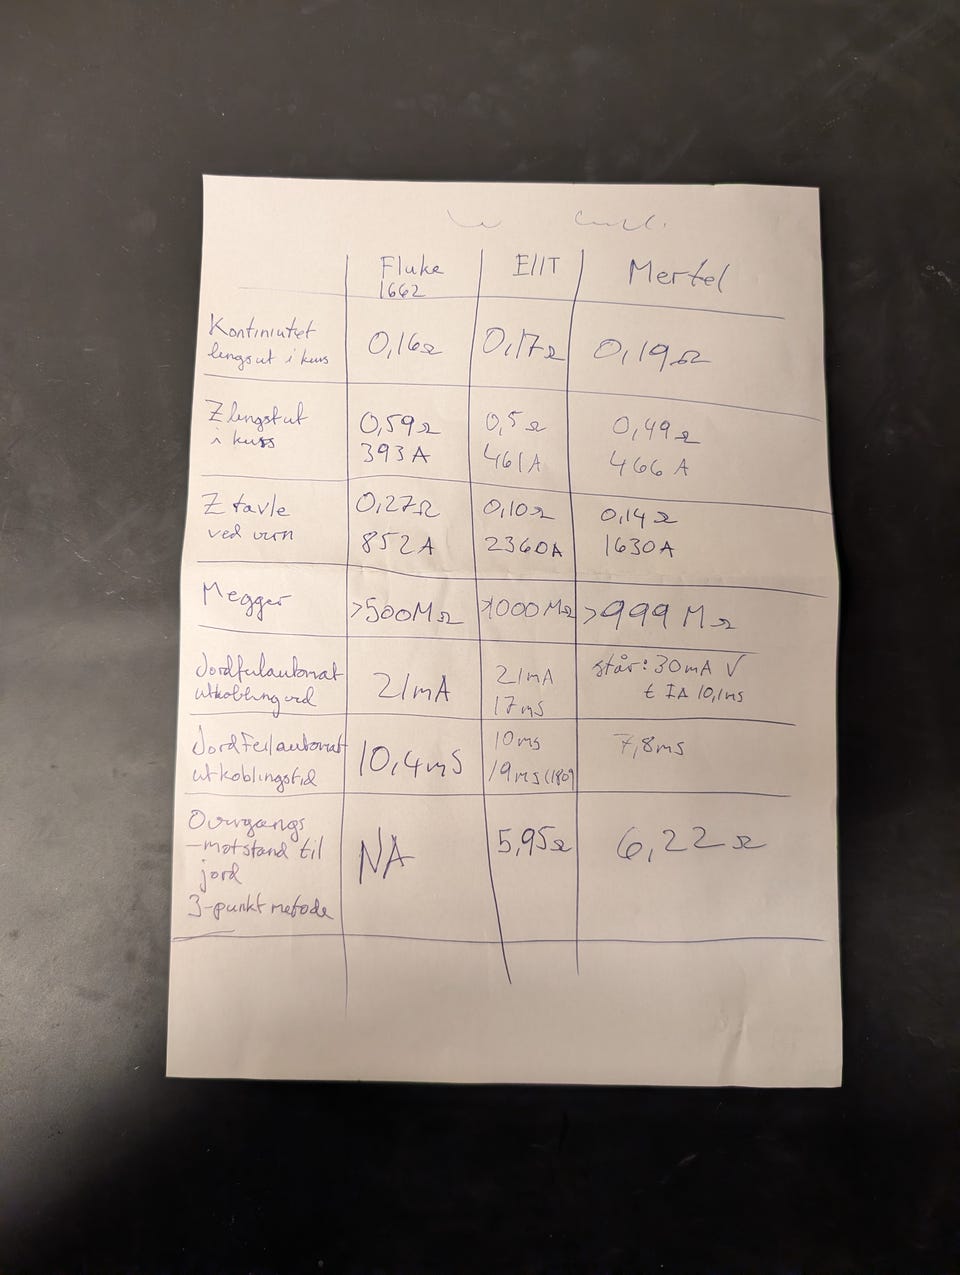 Fluke
1662
E11T
Mertel
Kontiniutet
lengsut i kurs
0,16Ω
0,17Ω
0,19Ω
Z lengstut
i kurs
0,59Ω
393A
0,5Ω
461A
0,49Ω
466 A
Z tavle
ved vern
0,27Ω
852A
0,10Ω
2360A
0,14Ω
1630A
Megger
>500MΩ
>1000MΩ
>999 MΩ
Jordfeilautomat
utkobling ved
21mA
21mA
17ms
står: 30mA V
t IΔ 10,1ms
Jordfeilautomat
utkoblingstid
10,4mS
10ms
19ms (180)
7,8ms
Overgangs
-motstand til
jord
3-punkt metode
NA
5,95Ω
6,22Ω